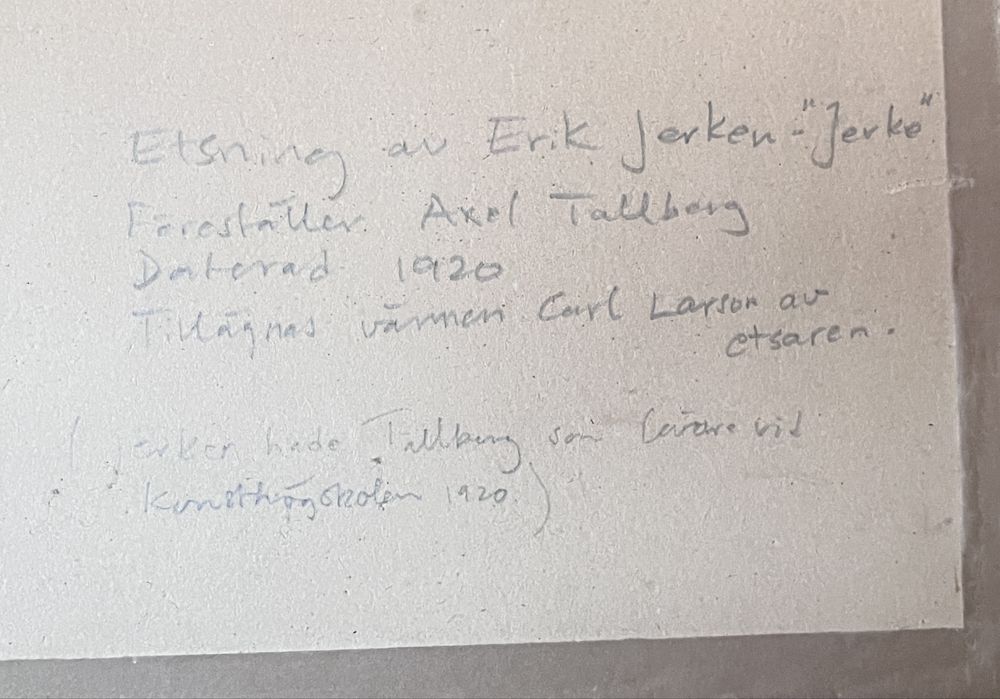 Etsning av Erik Jerken - "Jerke"
Föreställer Axel Tallberg
Daterad 1920
Tillägnas vännen Carl Larson av
etsaren.
(Jerken hade Tallberg som lärare vid
Konsthögskolan 1920)